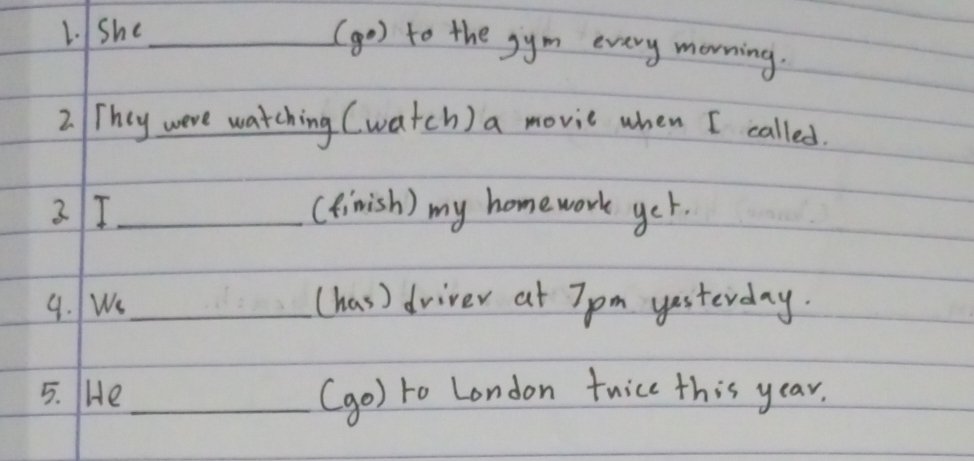 1. She ____________ (go) to the gym every morning.
2. They were watching (watch) a movie when I called.
3 I ____________ (finish) my homework yet.
4. We ____________ (has) driver at 7pm yesterday.
5. He ____________ (go) to London twice this year.